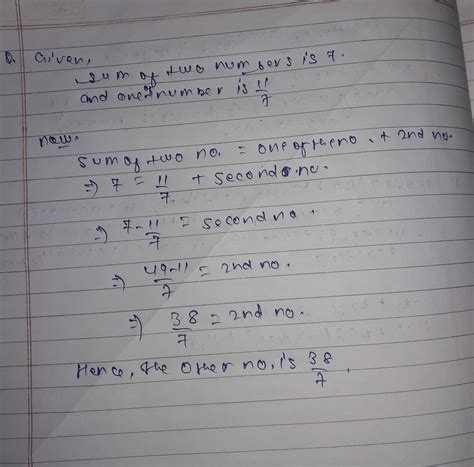 Q. Given,
sum of two numbers is 7.
and one number is 11/7
now.
sum of two no. = one of the no. + 2nd no.
⇒ 7 = 11/7 + second no.
⇒ 7 - 11/7 = second no.
⇒ 49-11/7 = 2nd no.
⇒ 38/7 = 2nd no.
Hence, the other no. is 38/7.